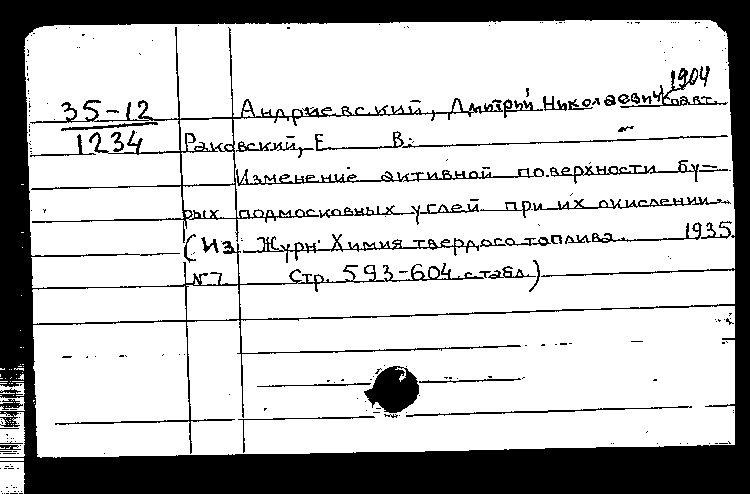 1904
35-12 Андриевский, Дмитрий Николаевич соавт.
1234 Раковский, Е. В.
Изменение активной поверхности бу-
рых подмосковных углей при их окислении.
(Из Журн: Химия твердого топлива. 1935
№7. Стр. 593-604 с табл.)